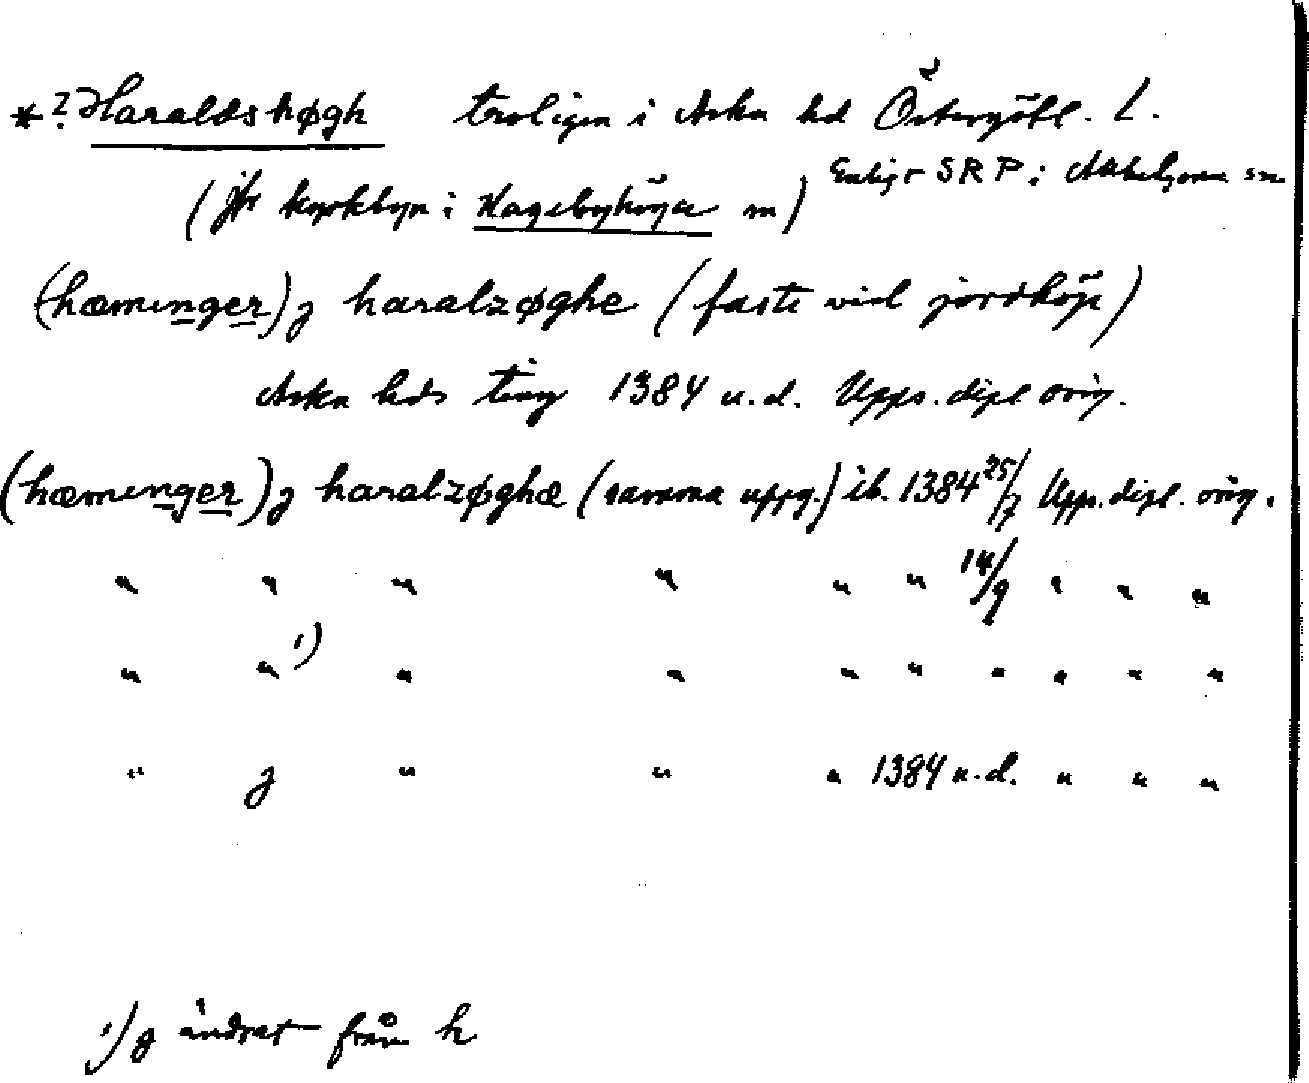 *? Haraldshøgh troligen i Aska hd Östergötl. L.
Enligt SRP i
(jfr kyrkbyn i Hagebyhöga sn)
(hæminger) j haralzøghe (faste vid jordköp)
Aska hds ting 1384 u.d. Upps. dipl orig.
(hæmenger) j haralzøghæ (samma uppg.) ib. 1384 25/7 Upps. dipl. orig.
" " " " " " 14/9 " " "
" " 1) " " " " " " " "
" j " " " 1384 u.d. " " "
1) j ändrat från h